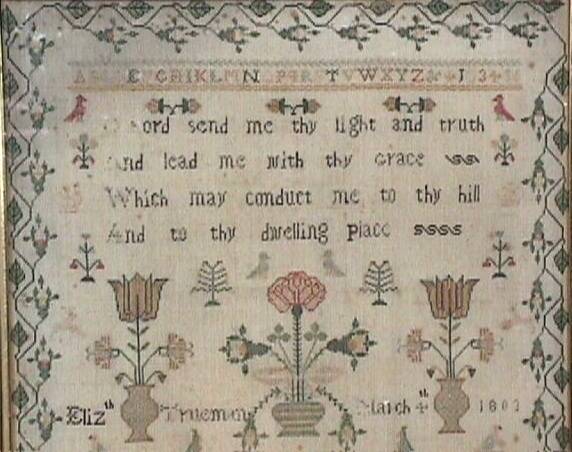 A B C D E F G H I K L M N O P Q R S T V W X Y Z
ord send me thy light and truth
And lead me with thy Grace
Which may conduct me to thy hill
And to thy dwelling place
Eliz th Trueman March 4 th